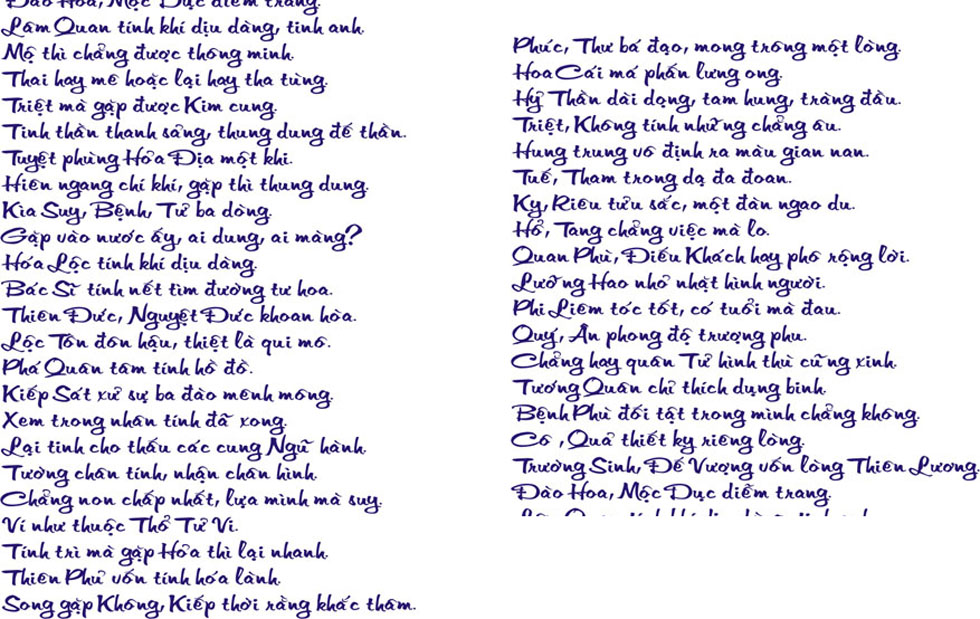 Đào Hoa, Mộc Dục diễm trang.
Lâm Quan tính khí dịu dàng, tinh anh.
Mộ thì chẳng được thông minh.
Thai hay mê hoặc lại hay tha tùng.
Triệt mà gặp được Kim cung.
Tinh thần thanh sảng, thung dung để thần.
Tuyệt phùng Hỏa Địa một khi.
Hiên ngang chí khí, gặp thì thung dung.
Kìa Suy, Bệnh, Tử ba dòng.
Gặp vào nước ấy, ai dung, ai màng?
Hóa Lộc tính khí dịu dàng.
Bác Sĩ tính nết tìm đường tư hoa.
Thiên Đức, Nguyệt Đức khoan hòa.
Lộc Tồn đôn hậu, thiệt là qui mô.
Phá Quân tâm tính hồ đồ.
Kiếp Sát xử sự ba đào mênh mông.
Xem trong nhân tính đã xong.
Lại tinh cho thấu các cung Ngũ hành.
Tường chân tính, nhận chân hình.
Chẳng non chấp nhất, lựa mình mà suy.
Ví như thuộc Thổ Tử Vi.
Tính trì mà gặp Hỏa thì lại nhanh.
Thiên Phủ vốn tính hóa lành.
Song gặp Không, Kiếp thời rằng khắc thâm.
Phúc, Thư bá đạo, mong trông một lòng.
Hoa Cái má phấn lưng ong.
Hỷ Thần dài dọng, tam hung, tràng đầu.
Triệt, Không tính những chẳng âu.
Hung trung vô định ra màu gian nan.
Tuế, Tham trong dạ đa đoan.
Kỵ, Riêu tửu sắc, một đàn ngao du.
Hổ, Tang chẳng việc mà lo.
Quan Phù, Điếu Khách hay phô rộng lời.
Lưỡng Hao nhỏ nhặt hình người.
Phi Liêm tóc tốt, có tuổi mà đau.
Quý, Ân phong độ trượng phu.
Chẳng hay quân Tử hình thù cũng xinh.
Tướng Quân chỉ thích dụng binh.
Bệnh Phù đối tật trong mình chẳng không.
Cô , Quả thiết kỵ riêng lòng.
Trường Sinh, Đế Vượng vốn lòng Thiên Lương.
Đào Hoa, Mộc Dục diễm trang.